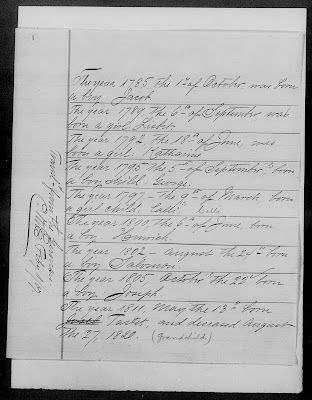 The year 1785 the 1st of October was born
a boy Jacob
The year 1789 the 6th of September was
born a girl
The year 1792 the 18th of June, was
born a girl Katharine
The year 1795 the 5th of September born
a boy child George
The year 1797 – the 9th of March born
a girl child
The year the 9th of June, born
a boy Heinrich
The year 1802 – August the 24th born
a boy Salomon
The year 1805 October the 22d born
a boy Joseph
The year 1811, May the 13th born
and deceased August
the 27, 1820. (grandchild)